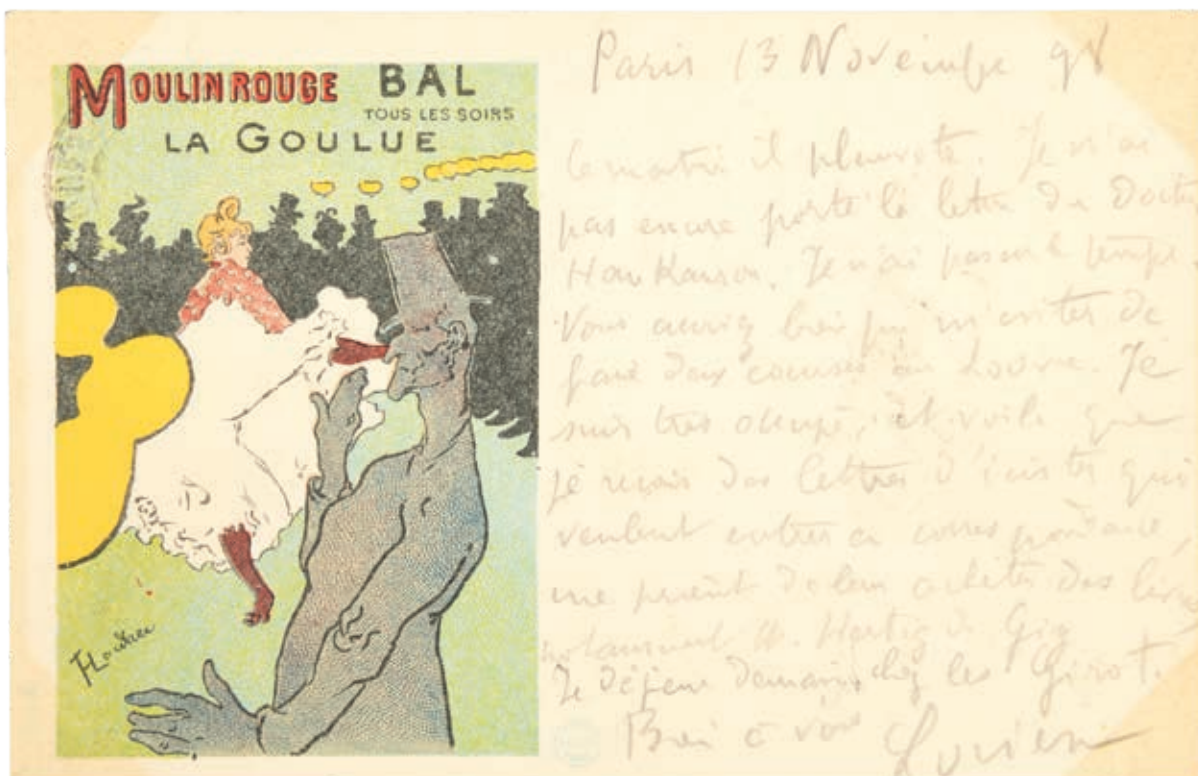 MOULIN ROUGE BAL
TOUS LES SOIRS
LA GOULUE
HTLautrec
Paris 13 Novembre 98
Ce matin il pleuvote. Je n'ai
pas encore porté la lettre du Docteur
Je n'ai pas eu le temps.
Vous auriez bien pu m'éviter de
faire deux courses au Louvre. Je
suis très occupé, et voilà que
je reçois des lettres d'
qui
veulent entrer en correspondance,
me prient de leur acheter des livres
notamment M. Hertig
Je déjeune demain chez les Girot.
Bien à vous Lucien